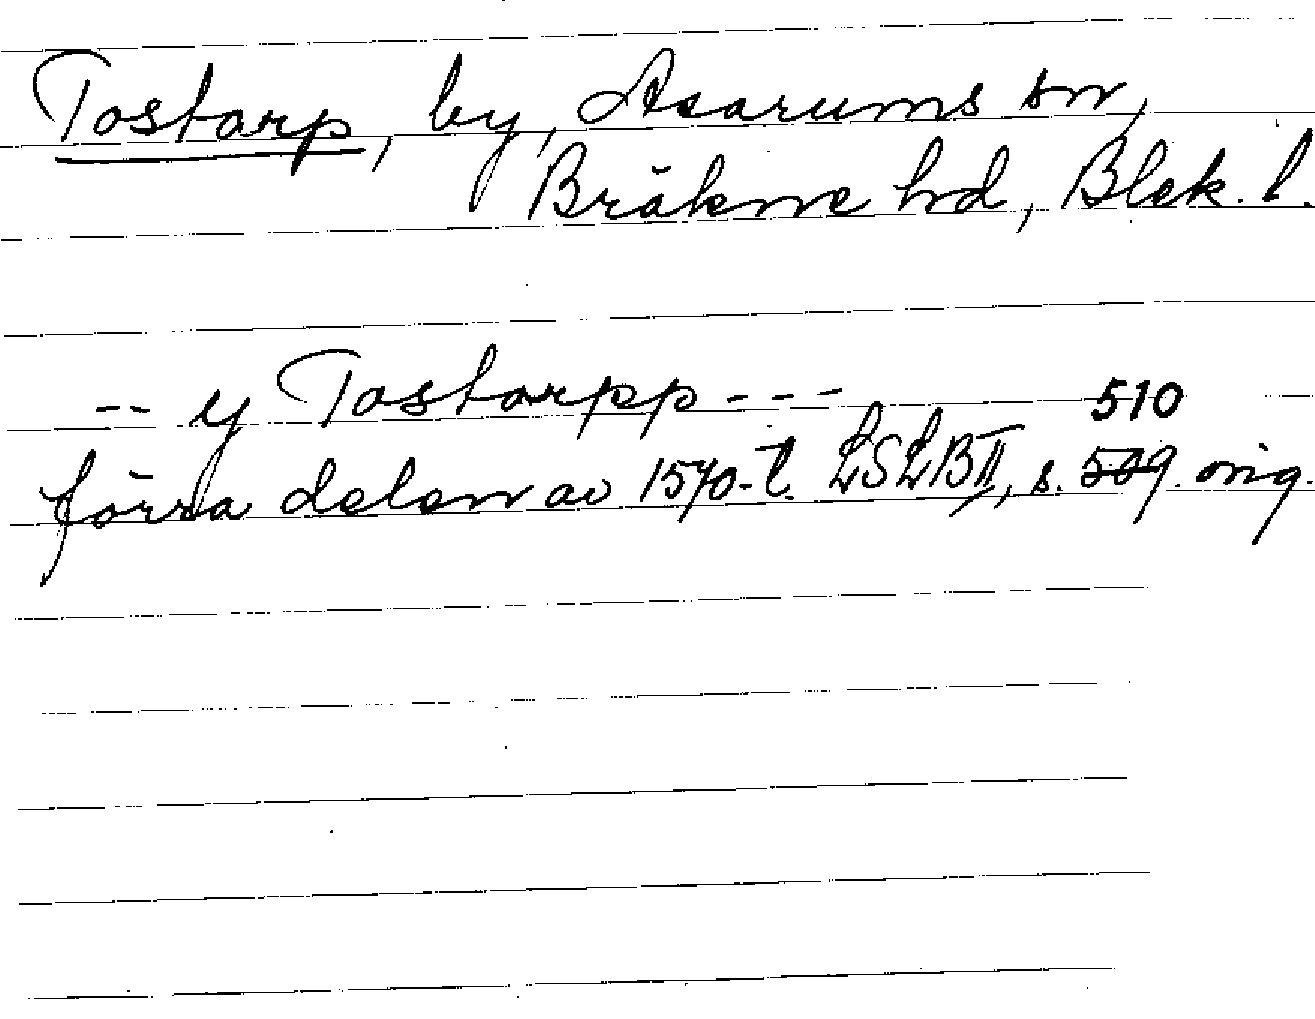 Tostarp, by, Asarums sn,
Bräkne hd, Blek. l.
-- y Tostorpp ---
510
förra delen av 1570-t. LSLB II, s. 509. orig.